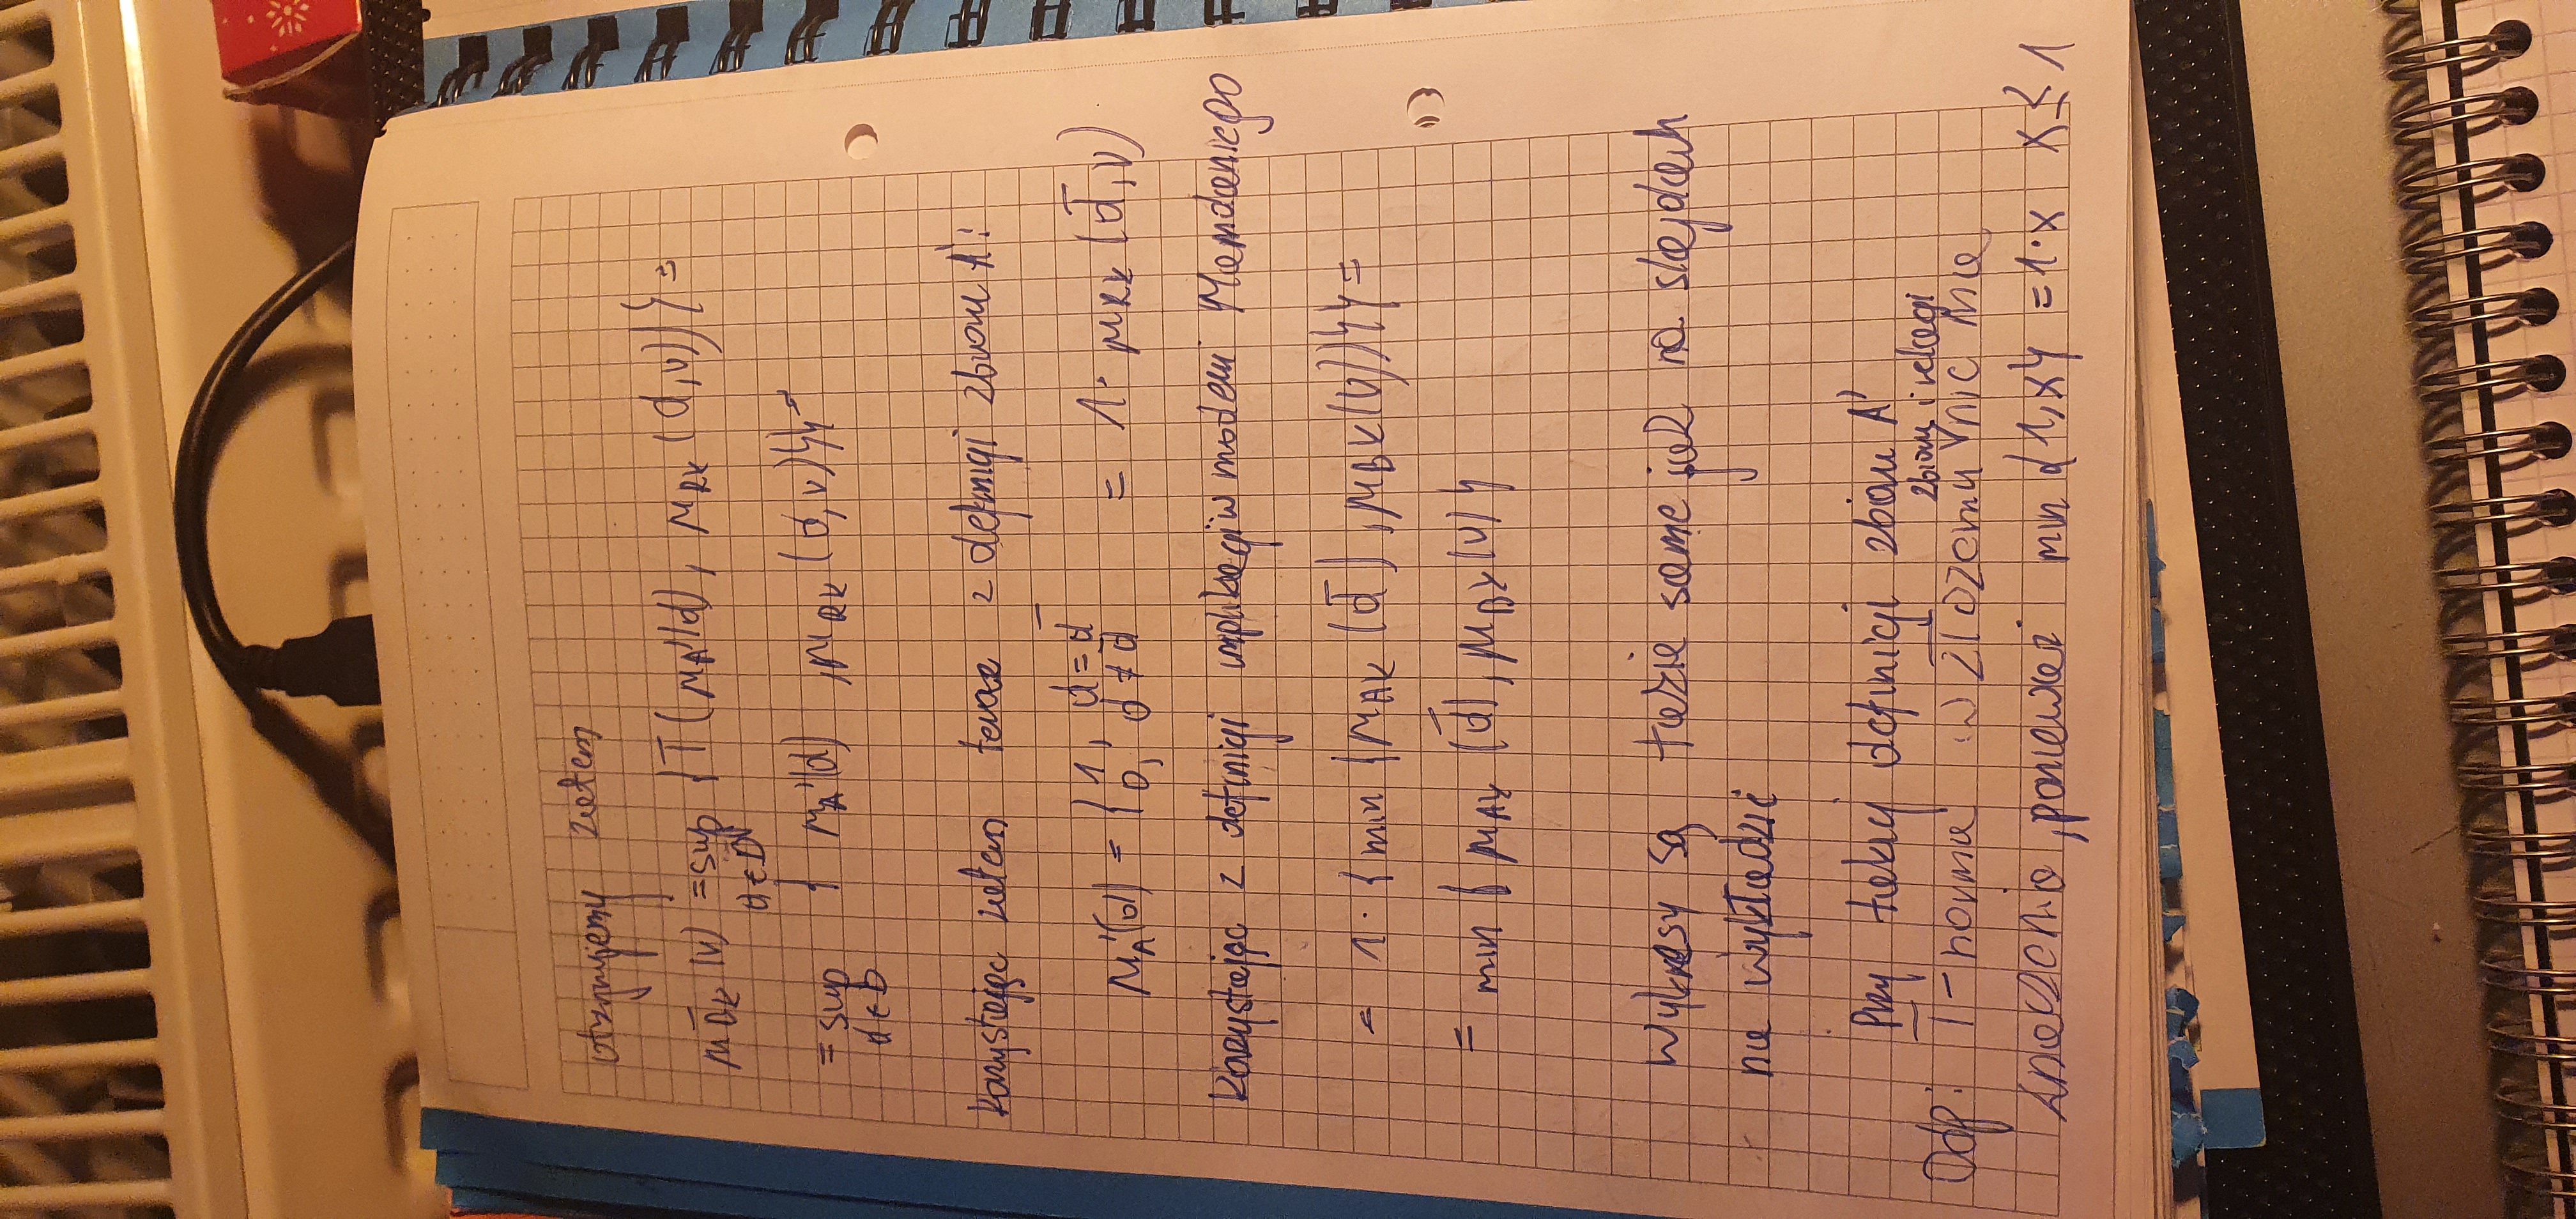 otrzymujemy zatem
μ_B̄k (v) = sup {T(μ_A'(d), μ_Rk (d,v))} =
d∈D
= sup { μ_A'(d) , μ_Rk (d,v)}} =
d∈D
korzystając zatem teraz z definicji zbioru A':
μ_A'(d) = { 1, d = d̄
0, d ≠ d̄ = 1· μ_Rk (d̄,v)
korzystając z definicji implikacji w modelu Mamdaniego
= 1· {min {μ_Ak (d̄), μ_Bk(v)}} =
= min { μ_Ak (d̄), μ_Bk (v) }
Wykresy są takie same jak na slajdach
na wykładzie
Przy takiej definicji zbioru A'
zbioru i relacji
Odp: T-norma w złożeniu nic ma
znaczenia, ponieważ min {1,x} = 1·x x ≤ 1